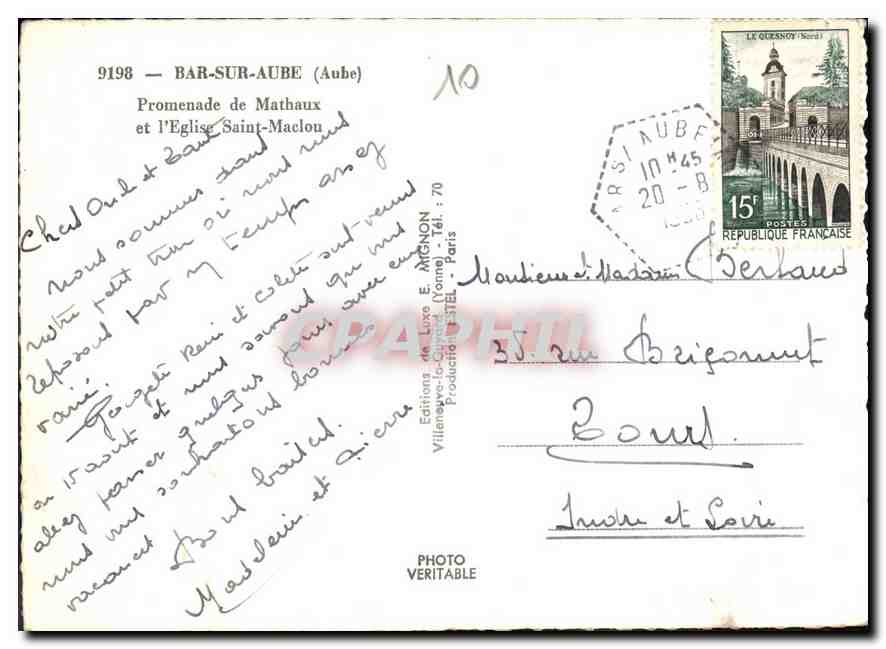 9198 — BAR-SUR-AUBE (Aube)
Promenade de Mathaux
et l'Eglise Saint-Maclou
10
Cher Oncle et Tante
nous sommes dans
notre petit trou où nous nous
reposons par un temps assez
varié.
Georgette Remi et Colette sont venus
au 15 aout et nous savons que vous
allez passer quelques jours avec eux
nous vous souhaitons bonnes
vacances
Bons baisers.
Madeleine et Pierre
Editions de Luxe E. MIGNON
Villeneuve-la-Guyard (Yonne) - Tél. : 70
Production ESTEL - Paris
PHOTO
VERITABLE
LE QUESNOY (Nord)
15F
POSTES
REPUBLIQUE FRANÇAISE
ARS/AUBE
10 H 45
20 - 8
Monsieur et Madame Bertaud
35 rue
Tours
Indre et Loire
CPAPHIL